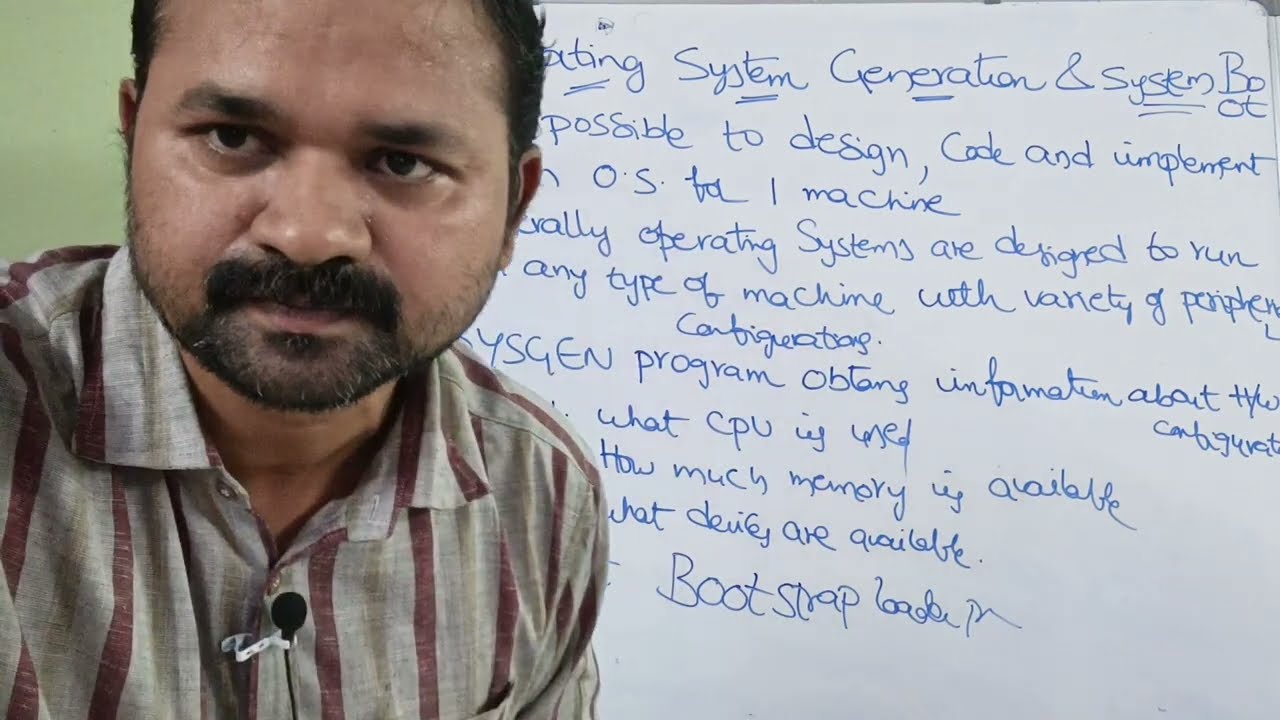 ating System Generation & System Boot
possible to design, Code and implement
n O.S. for 1 machine
rally operating Systems are designed to run
any type of machine with variety of peripher
Configurations.
SYSGEN program obtains information about H/W
configurat
what CPU is used
How much memory is available
what devices are available.
Bootstrap loader